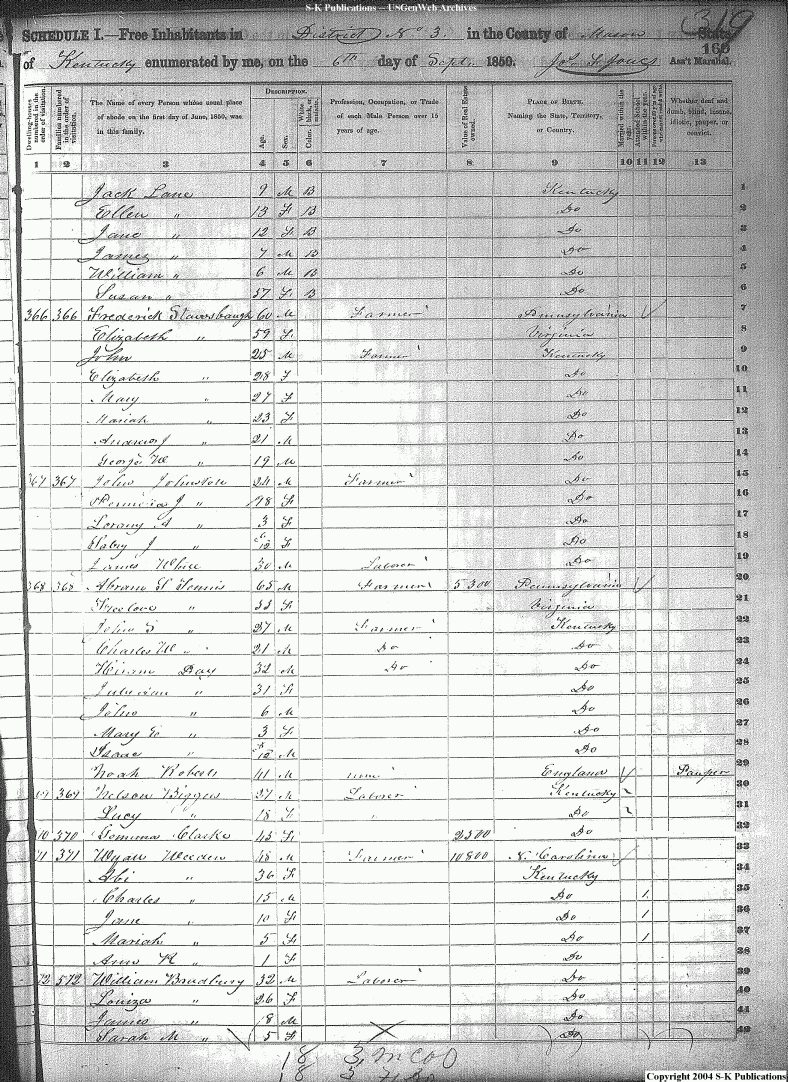 S-K Publications — USGenWeb Archives
319
SCHEDULE I.—Free Inhabitants in District No 3. in the County of Mason State
of Kentucky enumerated by me, on the 6th day of Sept. 1850. Jo. F. Jones Ass't Marshal.
160
Dwelling-houses numbered in the order of visitation.
Families numbered in the order of visitation.
The Name of every Person whose usual place of abode on the first day of June, 1850, was in this family.
DESCRIPTION.
Age.
Sex.
White, Color, black, or mulatto.
Profession, Occupation, or Trade of each Male Person over 15 years of age.
Value of Real Estate owned.
PLACE OF BIRTH. Naming the State, Territory, or Country.
Married within the year.
Attended School within the year.
Whether deaf and dumb, blind, insane, idiotic, pauper, or convict.
1 2 3 4 5 6 7 8 9 10 11 12 13
Jack Lane 9 M B Kentucky 1
Ellen " 13 F B Do 2
Jane " 12 F B Do 3
James " 7 M B Do 4
William " 6 M B Do 5
Susan " 57 F B Do 6
366 366 Frederick 60 M Farmer Pennsylvania 7
Elizabeth " 59 F Virginia 8
John 25 M Farmer Kentucky 9
Elizabeth " 28 F Do 10
Mary " 27 F Do 11
Mariah " 23 F Do 12
Andrew J " 21 M Do 13
George W " 19 M Do 14
367 367 John Johnston 24 M Farmer Do 15
J " 18 F Do 16
A " 3 F Do 17
J " F Do 18
James White 30 M Laborer Do 19
368 368 Abram 65 M Farmer 5300 Pennsylvania 20
Freelove " F Virginia 21
John S " 27 M Farmer Kentucky 22
Charles W " 21 M Do Do 23
Hiram Day 32 M Do Do 24
" 31 F Do 25
John " 6 M Do 26
Mary E " 3 F Do 27
Isaac " M Do 28
Noah Roberts 41 M none England Pauper 29
369 Nelson Biggers 37 M Laborer Kentucky 30
Lucy " 18 F Do 31
370 Clarke 45 F 2500 Do 32
71 371 Wyatt Weeden 48 M Farmer 10800 N. Carolina 33
Abi " 36 F Kentucky 34
Charles " 15 M Do 1 35
Jane " 10 F Do 1 36
Mariah " 5 F Do 1 37
Ann K " 1 F Do 38
72 572 William Bradbury 32 M Laborer Do 39
Louiza " 26 F Do 40
James " 8 M Do 41
Sarah M " 5 F Do 42
18
18
Copyright 2004 S-K Publications